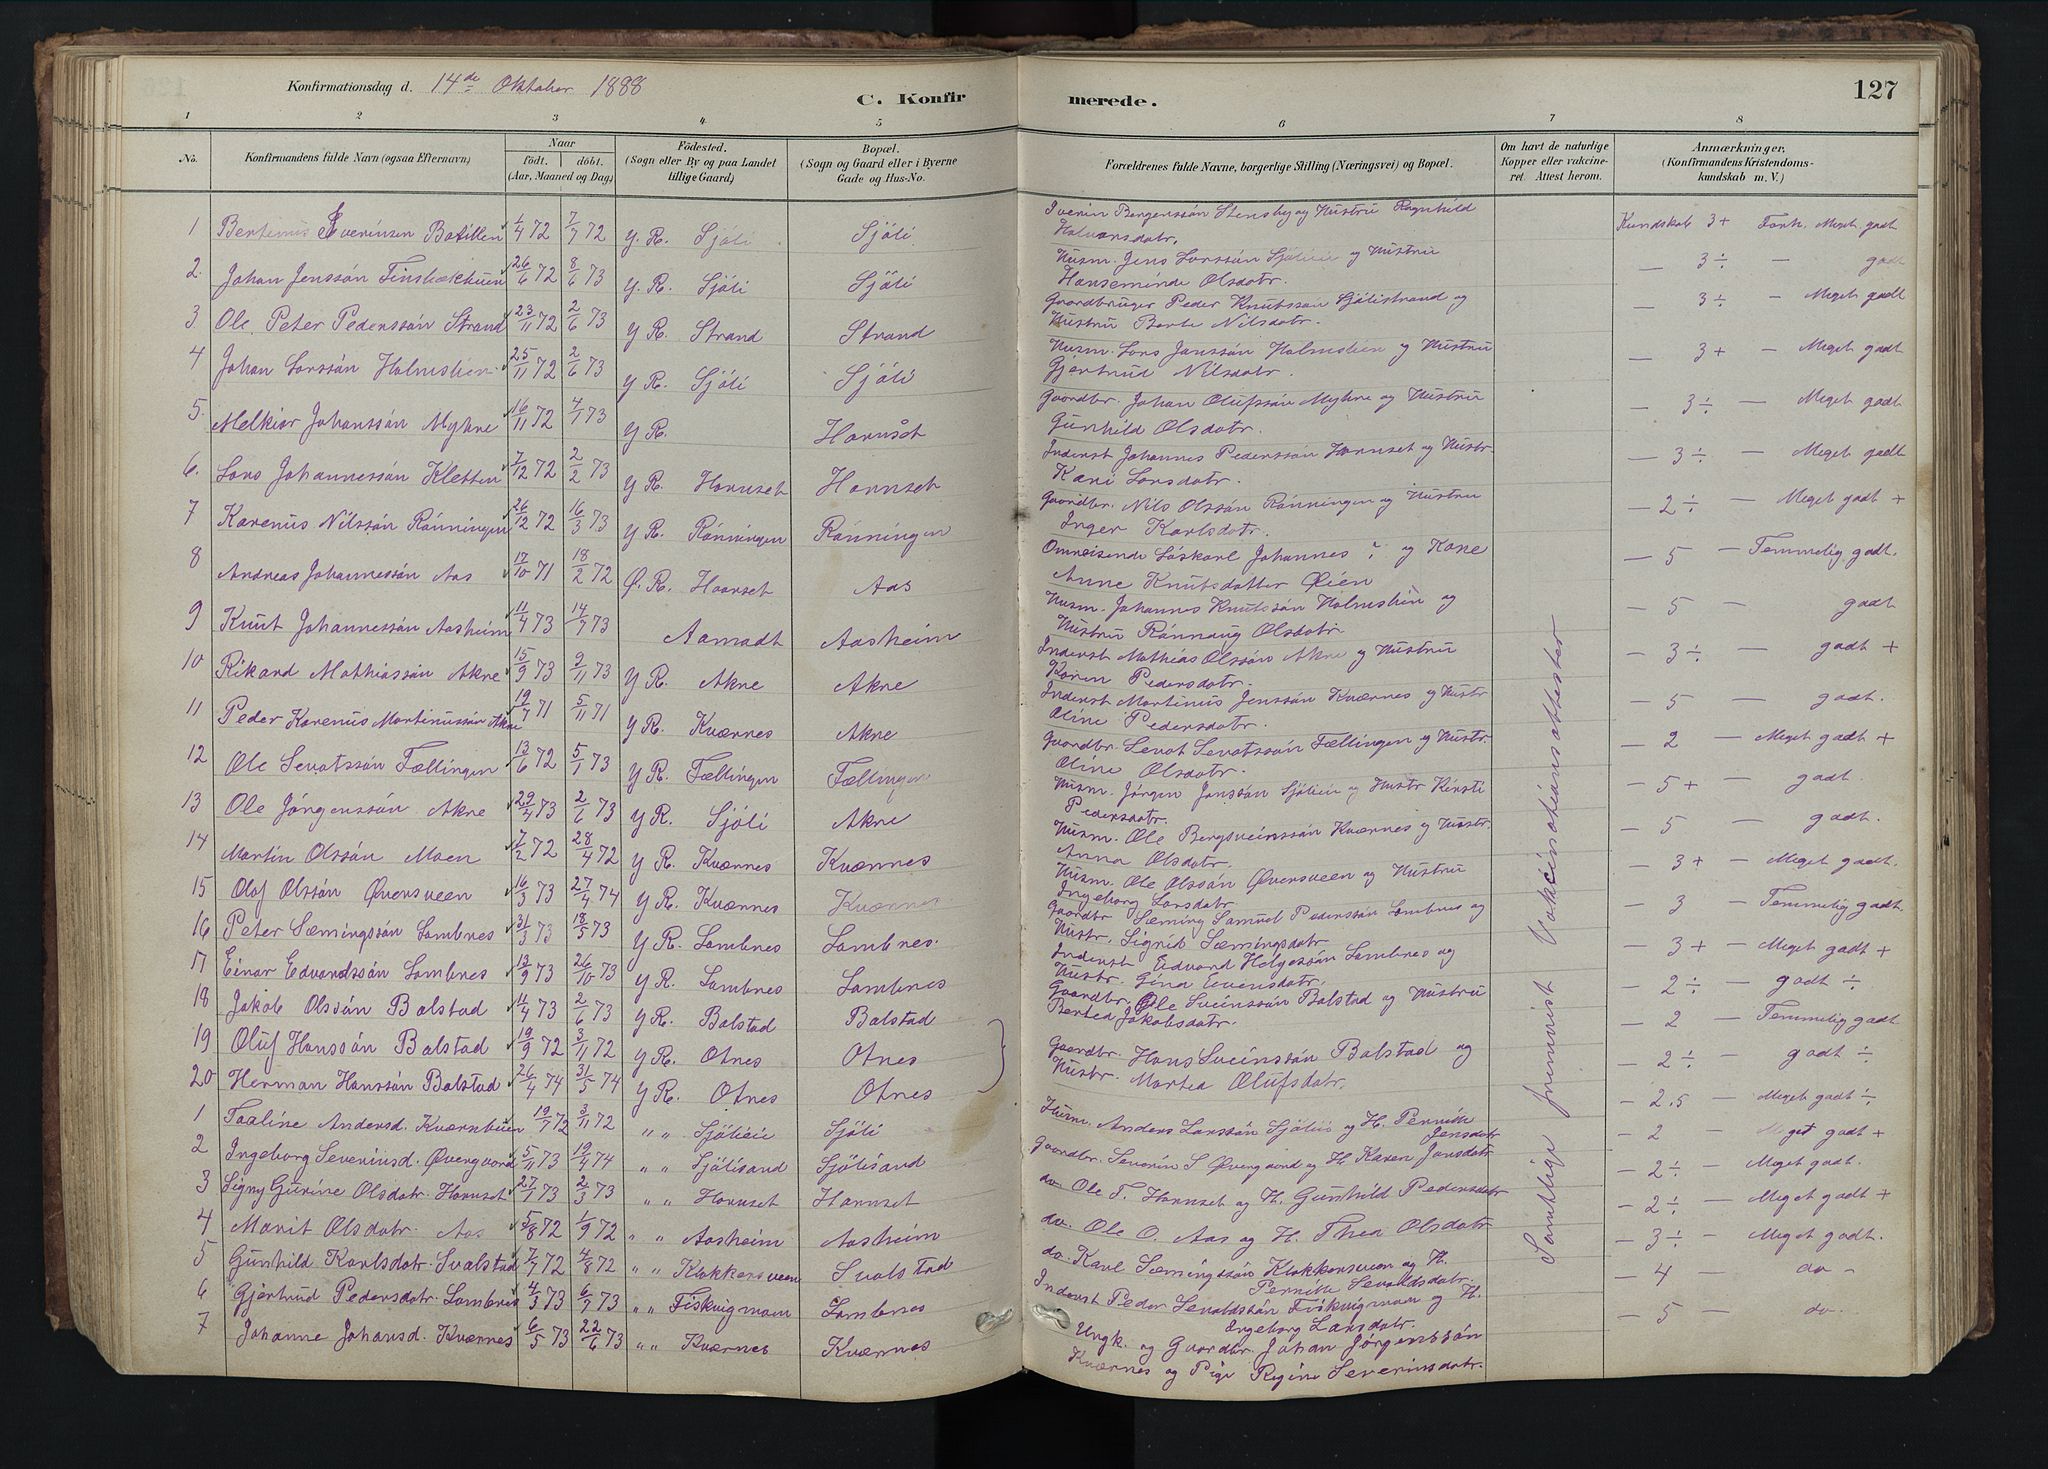 Konfirmationsdag d. 14de Oktober 1888
C. Konfirmerede.
127
1 2 3 4 5 6 7 8
No. Konfirmandens fulde Navn (ogsaa Efternavn) Naar født. døbt. (Aar, Maaned og Dag.) Födested. (Sogn eller By og paa Landet tillige Gaard) Bopæl. (Sogn og Gaard eller i Byerne Gade og Hus-No. Forældrenes fulde Navne, borgerlige Stilling (Næringsvei) og Bopæl. Om havt de naturlige Kopper eller vakcineret. Attest herom. Anmærkninger. (Konfirmandens Kristendomskundskab m. V.)
1 Bertinus Iverinsen 1/4 72 7/7 72 Y. R. Sjöli Sjöli Iverin Bergenssön Stensby og Hustru Ragnhild Halvorsdatr. Kundskab 3+ Forh. Meget godt
2. Johan Jenssön Finsbækhuen 26/6 72 8/6 73 Y. R. Sjöli Sjöli Husm. Jens Larssön Sjöliei og Hustru Hanseminde Olsdatr. — 3÷ — godt
3. Ole Peter Pederssön Strand 23/11 72 2/6 73 Y R. Strand Strand Gaardbruger Peder Knutssön Sjölistrand og Hustru Berte Nilsdatr. — 3÷ — Meget godt
4 Johan Larssön Holmslien 25/11 72 2/6 73 Y R. Sjöli Sjöli Husm. Lars Janssön Holmslien og Hustru Gjertrud Nilsdatr. — 3+ — Meget godt
5. Melkior Johanssön Myhre 16/11 72 4/1 73 Y R. Hornset Gaardbr. Johan Olufssön Myhre og Hustru Gunhild Olsdatr. — 3÷ — Meget godt
6. Lars Johannessön Kletten 7/12 72 2/2 73 Y R. Hornset Hornset Inderst Johannes Pederssön Hornset og Hustr. Kari Larsdatr. — 3÷ — Meget godt
7 Karenus Nilssön Rönningen 26/12 72 16/3 73 Y R. Rönningen Rönningen Gaardbr. Nils Olssön Rönningen og Hustru Inger Karlsdatr. — 2÷ — Meget godt +
8 Andreas Johannessön Aas 17/10 71 18/2 72 Ø. R. Haarset Aas Omreisende Löskarl Johannes ? og Kone Anne Knutsdatter Øien — 5 — Temmelig godt.
9 Knut Johannessön Aasheim 11/4 73 14/7 73 Aamodt Aasheim Husm. Johannes Knutssön Holmslien og Hustru Rönnaug Olsdatr — 5 — godt
10 Rikard Mathiassön Akre 15/9 73 9/11 73 Y R. Akre Akre Inderst Mathias Olssön Akre og Hustru Karen Pedersdatr. — 3÷ — godt +
11 Peder Karenus Martinussön Akre 19/7 71 5/11 71 Y R. Kværnes Akre Inderst Martinus Jenssön Kværnes og Hustr Oline Pedersdatr. — 5 — godt.
12 Ole Sevatssön Fællingen 13/6 72 5/1 73 Y R. Fællingen Fællingen Gaardbr. Sevat Sevatssön Fællingen og Hustr. Oline Olsdatr. — 2 — Meget godt +
13 Ole Jörgenssön Akre 29/4 73 2/6 73 Y R. Sjöli Akre Husm. Jörgen Janssön Sjöliei og Hustr Kirsti Pedersdatr. — 5+ — godt.
14 Martin Olssön Moen 7/2 72 28/4 72 Y R. Kværnes Kværnes Husm. Ole Bergsveinssön Kværnes og Hustr. Anna Olsdatr. — 5 — godt.
15 Olof Olssön Øversveen 16/3 73 27/4 74 Y R. Kværnes Kværnes Husm. Ole Olssön Øversveen og Hustru Ingeborg Larsdatr. — 3+ — Meget godt.
16 Peter Sæmingssön Lombnes 31/3 73 18/5 73 Y R. Lombnes Lombnes. Gaardbr Sæming Samuel Pederssön Lombnes og Hustr. Sigrid Sæmingsdatr — 3 — Temmelig godt.
17 Einar Edvardssön Lombnes 13/9 73 26/10 73 Y R. Lombnes Lombnes Inderst Edvard Helgessön Lombnes og Hustr. Gina Evensdatr. — 3+ — Meget godt +
18 Jakob Olssön Bolstad 11/4 73 2/6 73 Y R. Bolstad Bolstad Gaardbr. Ole Sveinssön Bolstad og Hustru Bertea Jakobsdatr. — 2÷ — godt ÷
19 Oluf Hanssön Bolstad 19/9 72 3/11 72 Y R. Otnes Otnes Gaardbr. Hans Sveinssön Bolstad og — 2 — Temmelig godt
20 Herman Hanssön Bolstad 26/4 74 31/5 74 Y R. Otnes Otnes Hustr. Martea Olufsdatr. — 2÷ — godt ÷
1 Taaline Andersd. Kværnbuen 19/7 72 3/11 72 " " Sjölieie Sjöli Husm. Anders Larssön Sjöliei og H. Pernille Jensdatr — 2.5 — Meget godt ÷
2 Ingeborg Severinsd. Øvergaard 5/11 73 19/4 74 " " Sjölisand Sjölisand Gaardbr. Severin S Øvergaard og H Karen Jansdatr — 2 — Meget godt +
3 Signy Gurine Olsdatr. Hornset 27/1 73 2/3 73 " " Hornset Hornset do. Ole T. Hornset og H. Gunhild Pedersdatr — 2÷ — Meget godt.
4 Marit Olsdatr. Aas 5/8 72 1/9 72 " " Aasheim Aasheim do. Ole O. Aas og H. Thea Olsdatr — 2÷ — Meget godt +
5 Gunhild Karlsdatr. Svalstad 7/7 72 4/8 72 " " Klokkersveen Svalstad do. Karl Sæmingssön Klokkersveen og H. Pernille Sevaldsdatr. — 3÷ — Meget godt.
6 Gjertrud Pedersdatr. Lombnes 4/3 73 6/7 73 " " Fiskvigmoen Lombnes Inderst Peder Sevaldssön Fiskvigmoen og H. Ingeborg Larsdatr. — 4 — do —
7 Johanne Johansd. Kværnes 6/5 73 22/6 73 " " Kværnes Kværnes Ungk. og Gaardbr. Johan Jørgenssön Kværnes og Pige Regine Severinsdatr. — 5 — do.
Samtlige fremvist Vakcinationsattester